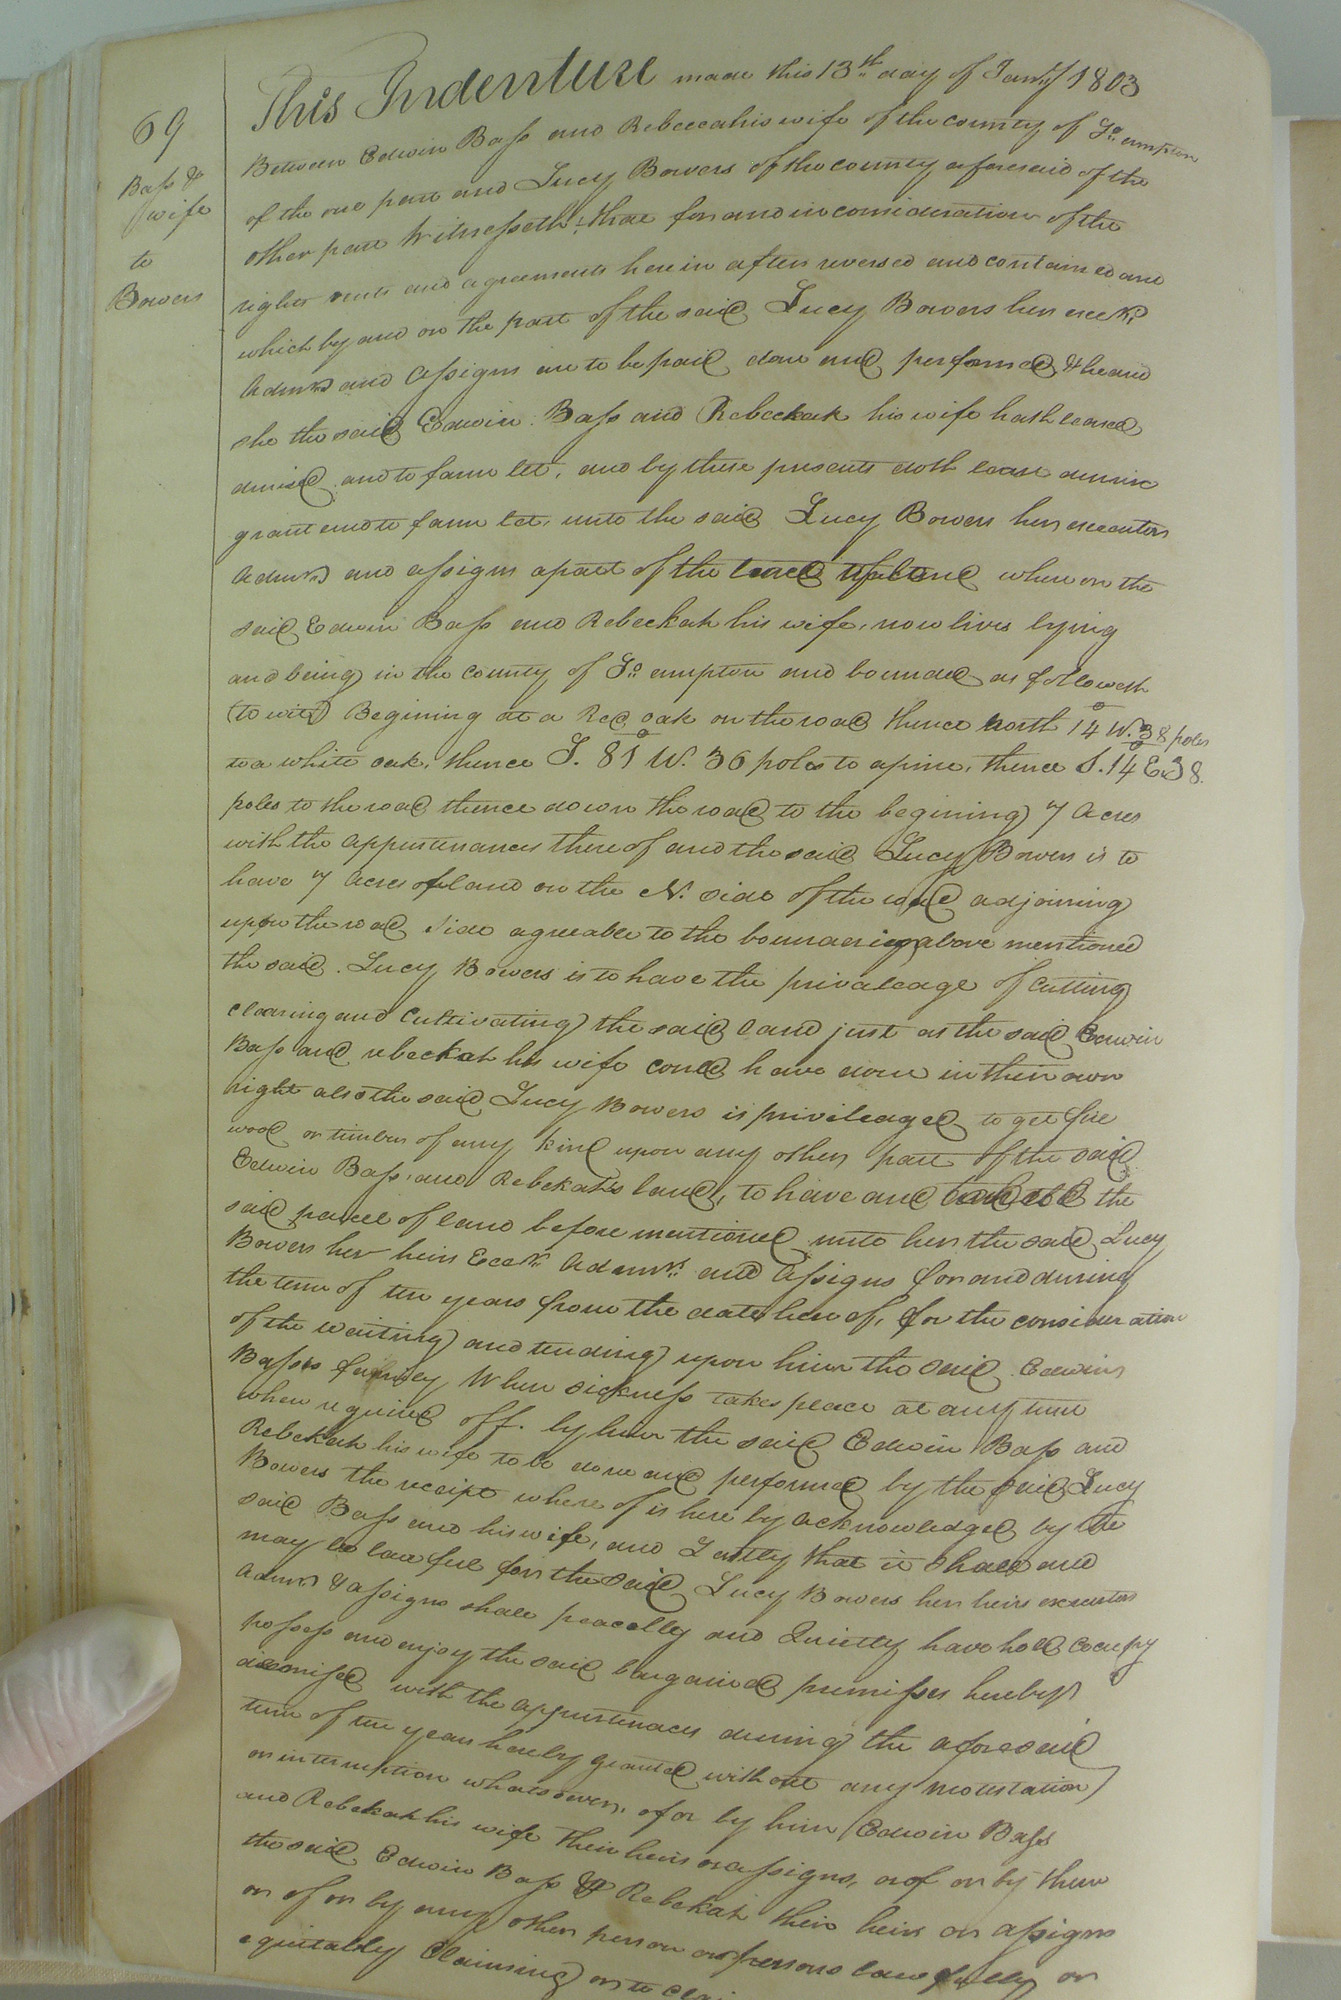 69
Bass &
wife
to
Bowers
This Indenture made this 13th day of Janry 1803
Between Edwin Bass and Rebecca his wife of the county of So.ampton
of the one part and Lucy Bowers of the county aforesaid of the
other part Witnesseth: that for and in consideration of the
rights rents and agreements herein after reversed and contained and
which by and on the part of the said Lucy Bowers her execrs
Admrs and Assigns are to be paid done and performed & he and
she the said Edwin Bass and Rebeckah his wife hath leased
demised and to farm let, and by these presents doth lease demise
grant and to farm let, unto the said Lucy Bowers her executors
Admrs and assigns a part of the land where on the
said Edwin Bass and Rebeckah his wife, now lives lying
and being in the county of So.ampton and bounded as followeth
(to wit) Begining at a Red oak on the road thence North 14° W. 38 poles
to a white oak, thence S. 81° W. 36 poles to a pine, thence S. 14° E. 38
poles to the road thence down the road to the begining 7 Acres
with the appurtenances thereof and the said Lucy Bowers is to
have 7 Acres of land on the N. side of the road adjoining
upon the road side agreable to the boundaries above mentioned
the said Lucy Bowers is to have the privaleage of Cutting
clearing and Cultivating the said land just as the said Edwin
Bass and rebeckah his wife could have done in their own
right also the said Lucy Bowers is privileaged to get fire
wood or timber of any kind upon any other part of the said
Edwin Bass, and Rebekah's land, to have and to hold the
said parcel of land before mentioned unto her the said Lucy
Bowers her heirs Execrs Admrs and Assigns for and during
the term of ten years from the date hereof, for the consideration
of the waiting and tending upon him the said Edwin
Bass's family When sickness takes place at any time
when required off. by him the said Edwin Bass and
Rebekah his wife to be done and performed by the said Lucy
Bowers the receipt where of is here by acknowledged by the
said Bass and his wife, and Lastly that it shall and
may be lawful for the said Lucy Bowers her heirs executors
Admrs & assigns shall peacebly and Quietly have hold Occupy
possess and enjoy the said bargained premisses hereby
demised with the appurtenaces during the aforesaid
term of ten years hereby granted without any molestation
or interruption whatsoever, of or by him Edwin Bass
and Rebekah his wife their heirs or assigns, or of or by them
the said Edwin Bass & Rebekah their heirs or assigns
or of or by any other person or persons lawfully or
equitably Claiming or to